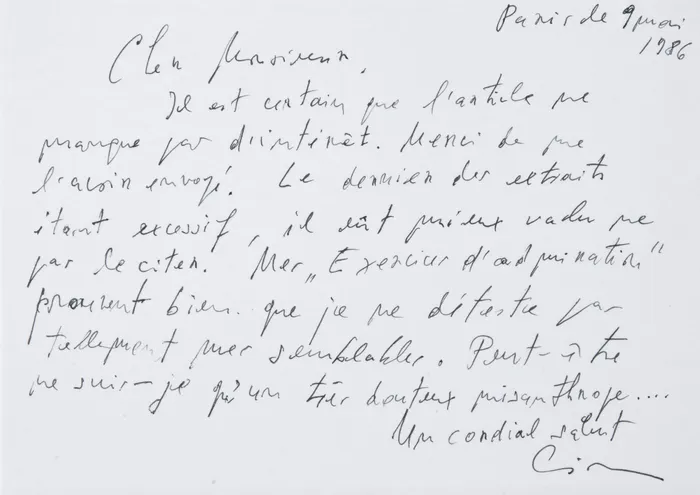 Paris le 9 mai
1986
Cher Monsieur,
Il est certain que l'article ne
manque pas d'intérêt. Merci de me
l'avoir envoyé. Le dernier des extraits
étant excessif, il eût mieux valu ne
pas le citer. Mes „Exercices d'admiration"
prouvent bien que je ne déteste pas
tellement mes semblables. Peut-être
ne suis-je qu'un très douteux misanthrope....
Un cordial salut
Cioran